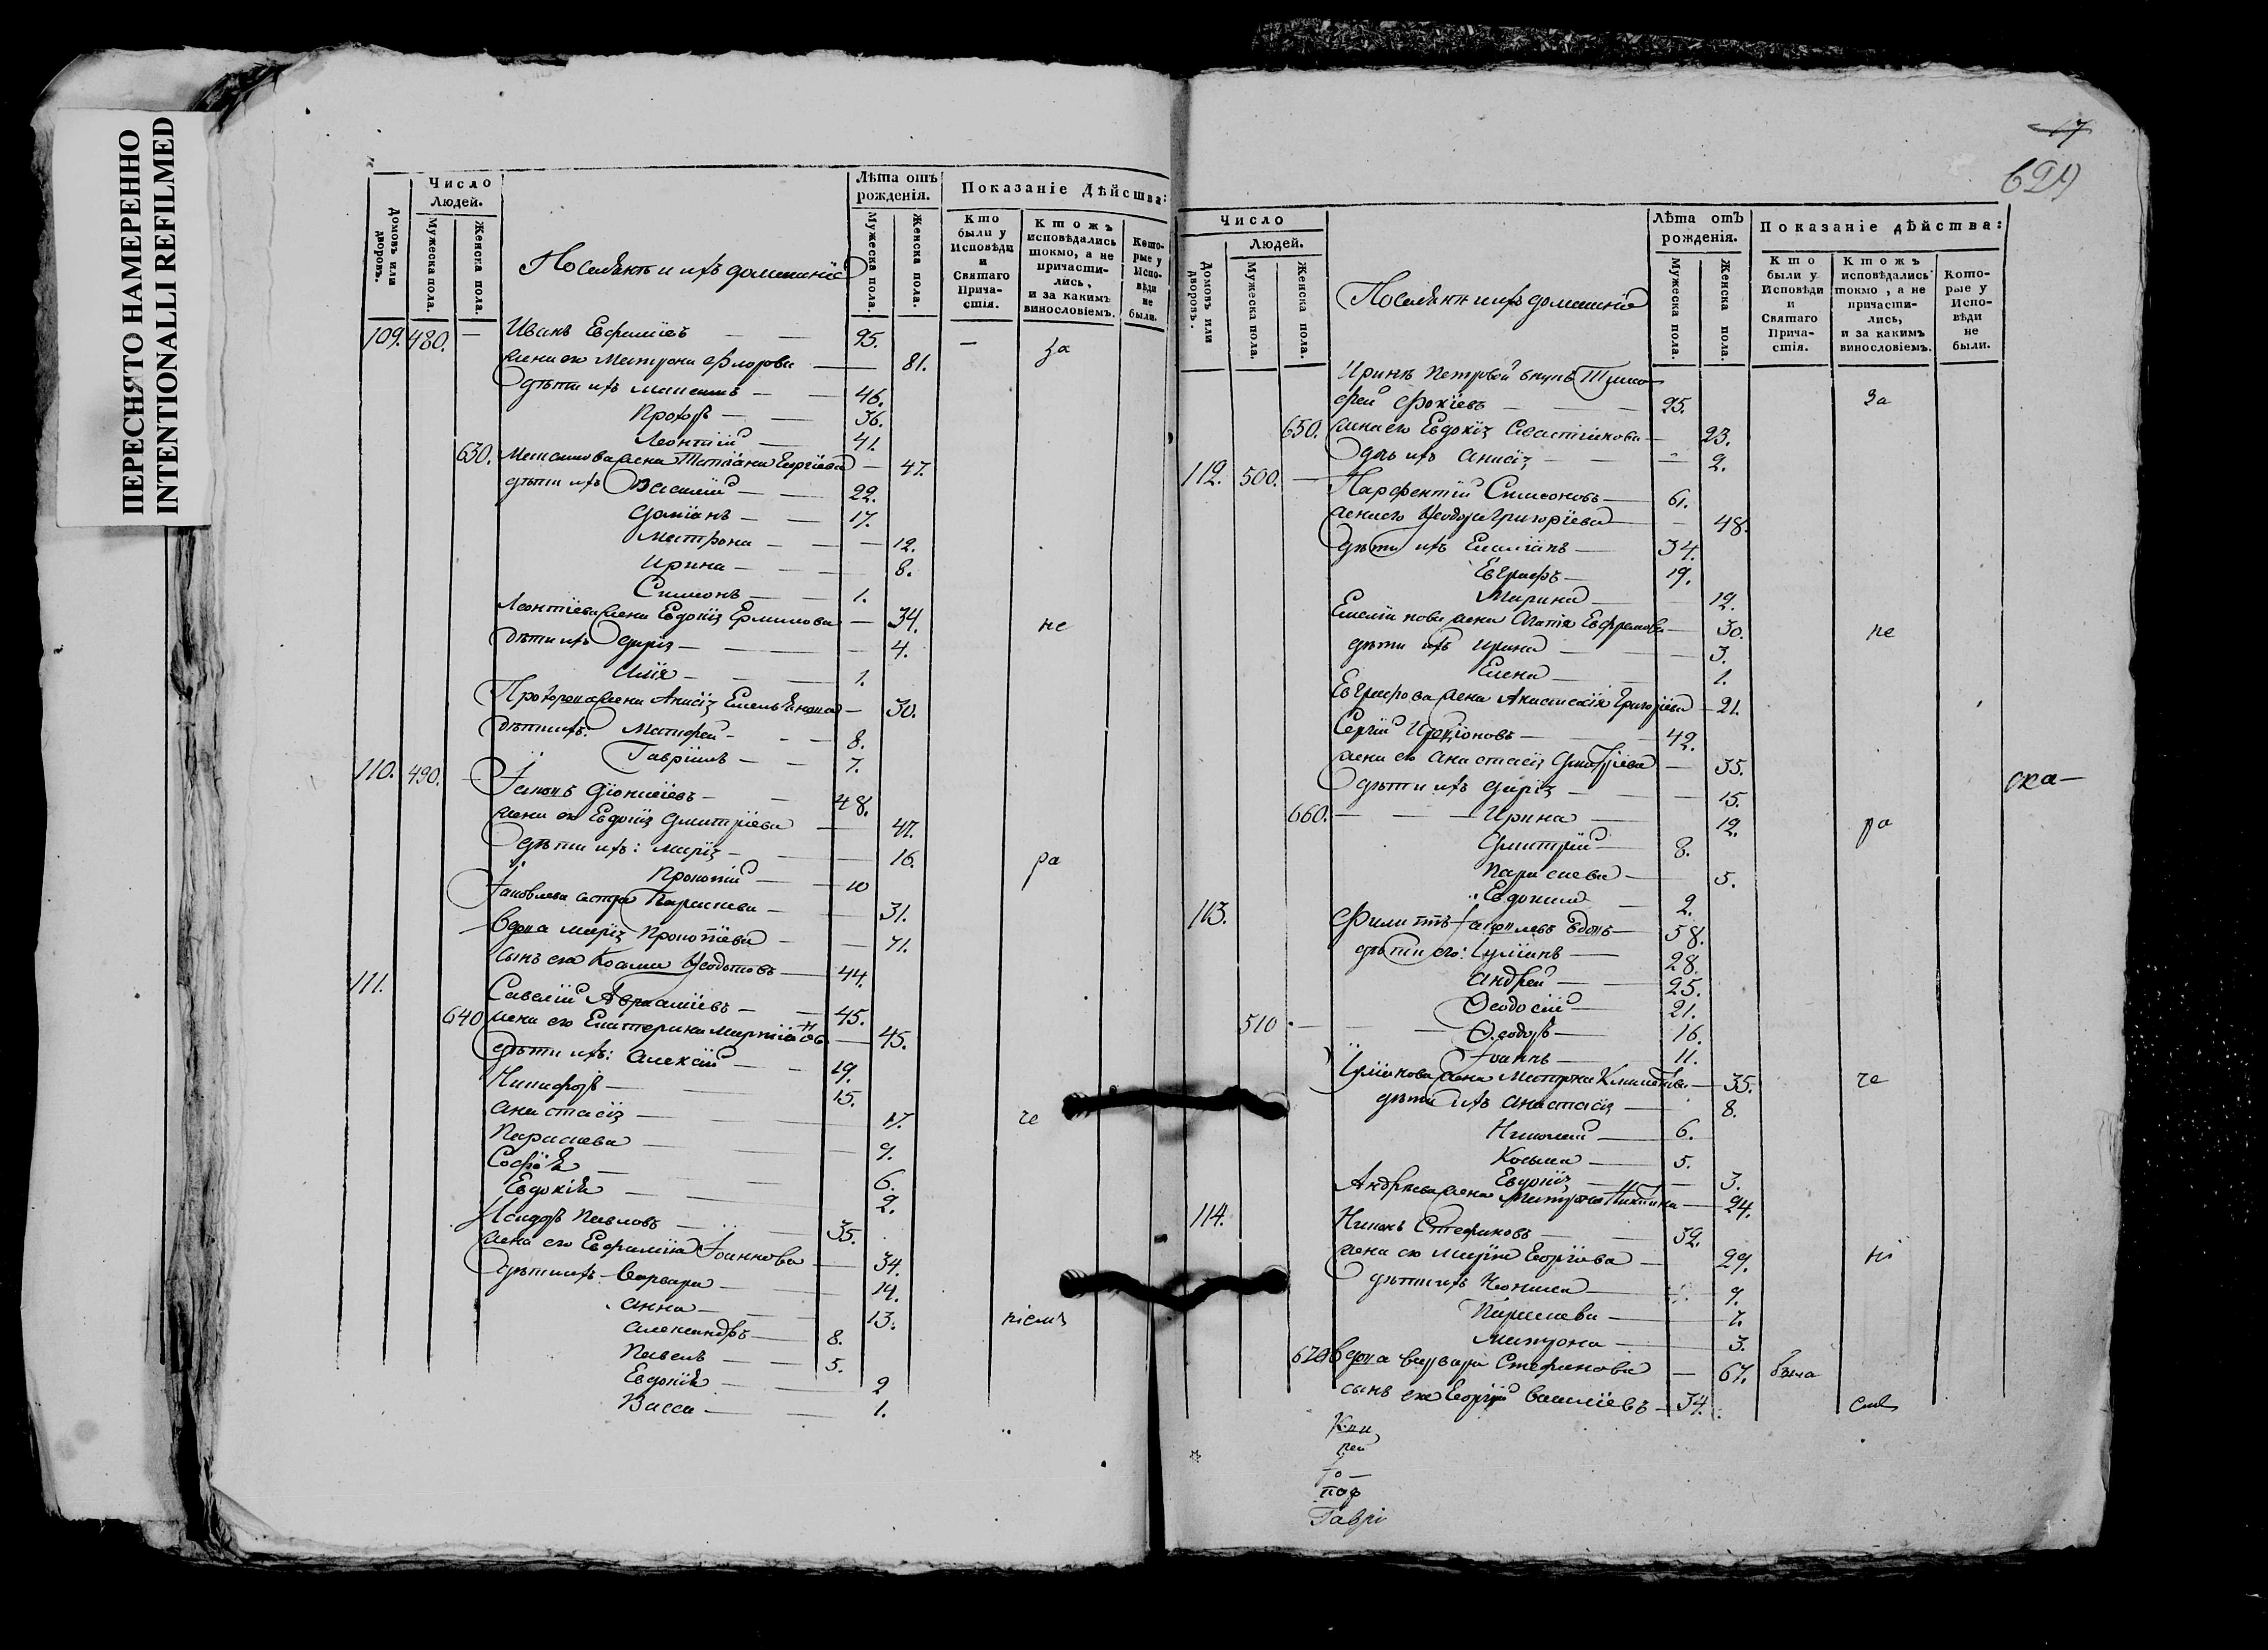 ПЕРЕСНЯТО НАМЕРЕННО
INTENTIONALLI REFILMED
Домовъ или дворовъ.
Число Людей.
Мужеска пола.
Женска пола.
Поселянъ и ихъ домашніе
Лѣта отъ рожденія.
Мужеска пола.
Женска пола.
Показаніе Дѣйства:
Кто были у Исповѣди и Святаго Прича-стія.
Ктожъ исповѣдались токмо, а не причасти-лись, и за какимъ винословіемъ.
Кото-рые у Испо-вѣди не были.
109. 480. — Иванъ Евфиміевъ — 95. — за
жена его Матрона Флорова — 81.
дѣти ихъ Моисей — 46.
Прохоръ — 36.
Леонтій — 41.
630. жена Татіана Георгіева — 47.
дѣти ихъ Василій — 22.
Даміанъ — 17.
Матрона — 12.
Ирина — 8.
Симеонъ — 1.
Леонтіева жена Евдокія — 34. не
дѣти ихъ Дарія — 4.
Илія — 1.
Прохорова жена Анисія Емельянова — 30.
дѣти ихъ: Матфей — 8.
Гавріилъ — 7.
110. 490. — Діонисіевъ — 48.
жена его Евдокія Дмитріева — 47.
дѣти ихъ: Марія — 16. ра
Прокопій — 10
Іаковлева сестра Параскева — 31.
Вдова Марія Прокопіева — 71.
сынъ ея Косма Ѳеодотовъ — 44.
111. Савелій Авраміевъ — 45.
640 жена его Екатерина — 45.
дѣти ихъ: Алексій — 19.
Никифоръ — 15.
Анастасія — 17. че
Параскева — 9.
Софія — 6.
Евдокія — 2.
Исидоръ Павловъ — 35.
жена его Евфимія Іоаннова — 34.
дѣти ихъ Варвара — 14.
Анна — 13. ніемъ
Александръ — 8.
Павелъ — 5.
Евдокія — 2
Васса — 1.
17
621
Домовъ или дворовъ.
Число Людей.
Мужеска пола.
Женска пола.
Поселянъ и ихъ домашніе
Лѣта отъ рожденія.
Мужеска пола.
Женска пола.
Показаніе дѣйства:
Кто были у Исповѣди и Святаго Прича-стія.
Ктожъ исповѣдались токмо, а не причасти-лись, и за какимъ винословіемъ.
Кото-рые у Испо-вѣди не были.
Ирины Петровой внукъ Тимо
фей Фокіевъ — 25. за
650. жена его Евдокія — 23.
дочь ихъ Анисія — 2.
112. 500. — Парфентій Симеоновъ — 61.
жена его Ѳеодора Григоріева — 48.
дѣти ихъ Емиліанъ — 34.
Евграфъ — 19.
Марина — 12.
жена Агапія Евфремова — 30. не
дѣти ихъ Ирина — 3.
Елена — 1.
Евграфова жена Анастасія Григоріева — 21.
Сергій — 42.
жена его Анастасія Дмитріева — 35.
дѣти ихъ Дарія — 15.
ска—
660. — Ирина — 12. ра
Дмитрій — 8.
Параскева — 5.
Евдокимъ — 2.
113. Филиппъ Іаковлевъ вдовъ — 58.
дѣти его: Іуліанъ — 28.
Андрей — 25.
Ѳеодосій — 21.
510 — Ѳеодоръ — 16.
Іоаннъ — 11.
жена Матрона — 35. че
дѣти ихъ Анастасія — 8.
Николай — 6.
Косма — 5.
Евдокія — 3.
Андреева жена Матрона Никитина — 24.
114. Стефановъ — 32.
жена его Марія Георгіева — 29. ні
дѣти ихъ — 9.
Параскева — 7.
Матрона — 3.
670 Вдова Варвара Стефанова — 67. была
сынъ ея Георгій Василіевъ — 34.
Гаврі